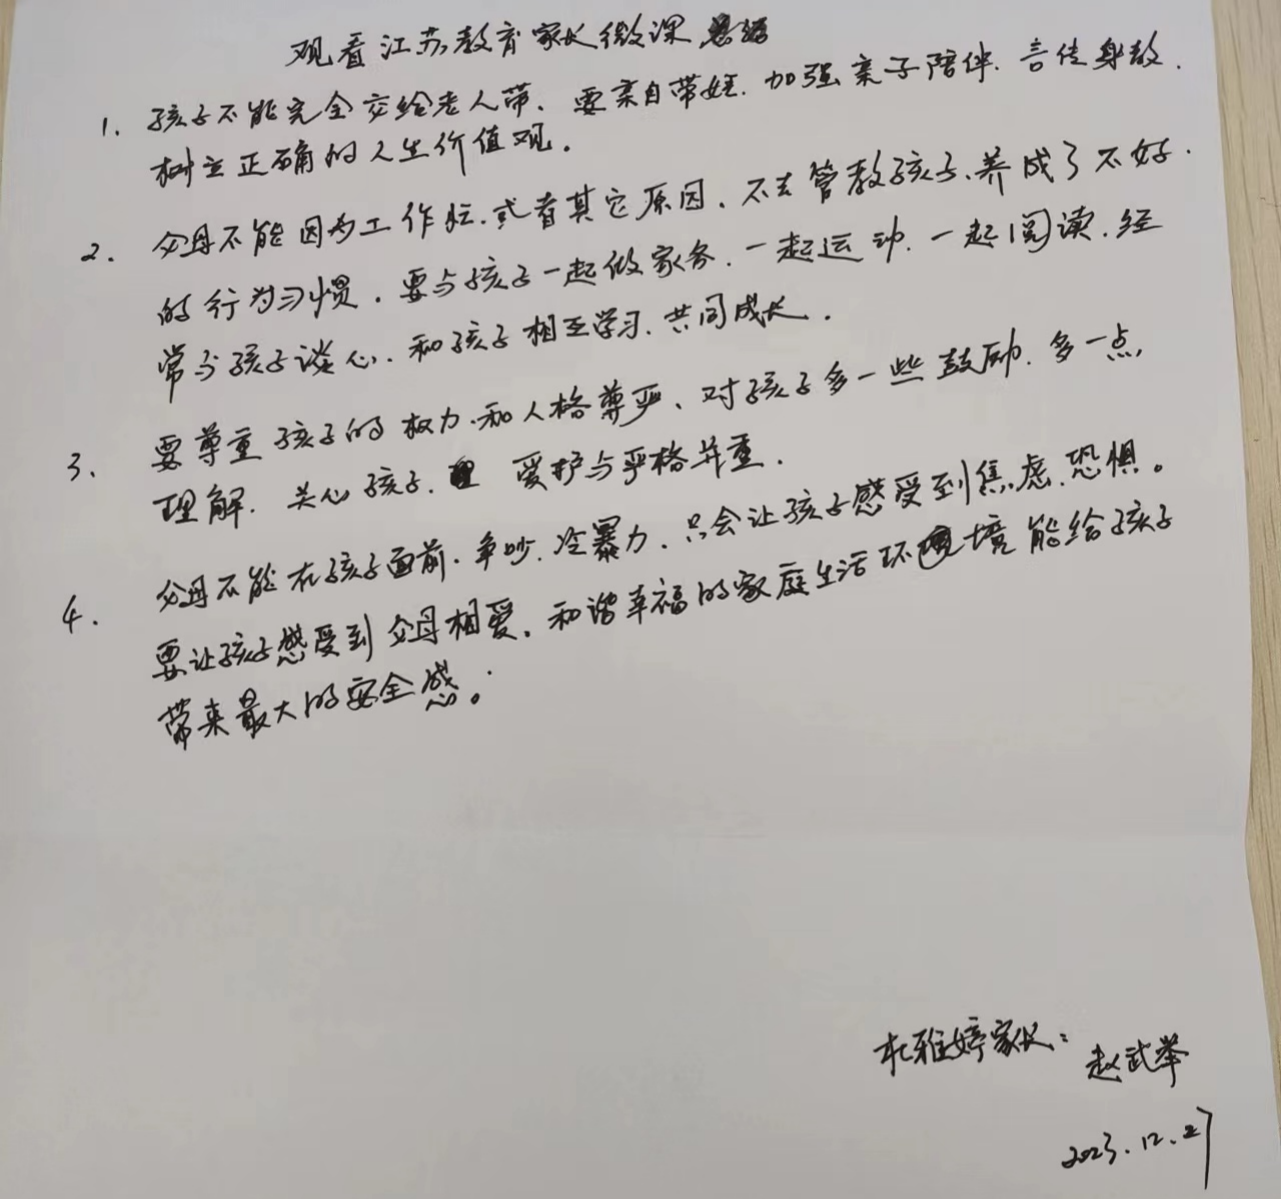 观看江苏教育家长微课总结
1. 孩子不能完全交给老人带、要亲自带娃.加强亲子陪伴.言传身教.
树立正确的人生价值观。
2. 父母不能因为工作忙.或者其它原因、不去管教孩子、养成了不好.
的行为习惯。要与孩子一起做家务.一起运动.一起阅读.经
常与孩子谈心.和孩子相互学习、共同成长.
3. 要尊重孩子的权力.和人格尊严、对孩子多一些鼓励.多一点
理解.关心孩子. 爱护与严格并重.
4. 父母不能在孩子面前.争吵.冷暴力、只会让孩子感受到焦虑.恐惧。
要让孩子感受到父母相爱.和谐幸福的家庭生活环境能给孩子
带来最大的安全感。
杜雅婷家长：
赵武举
2023.12.27